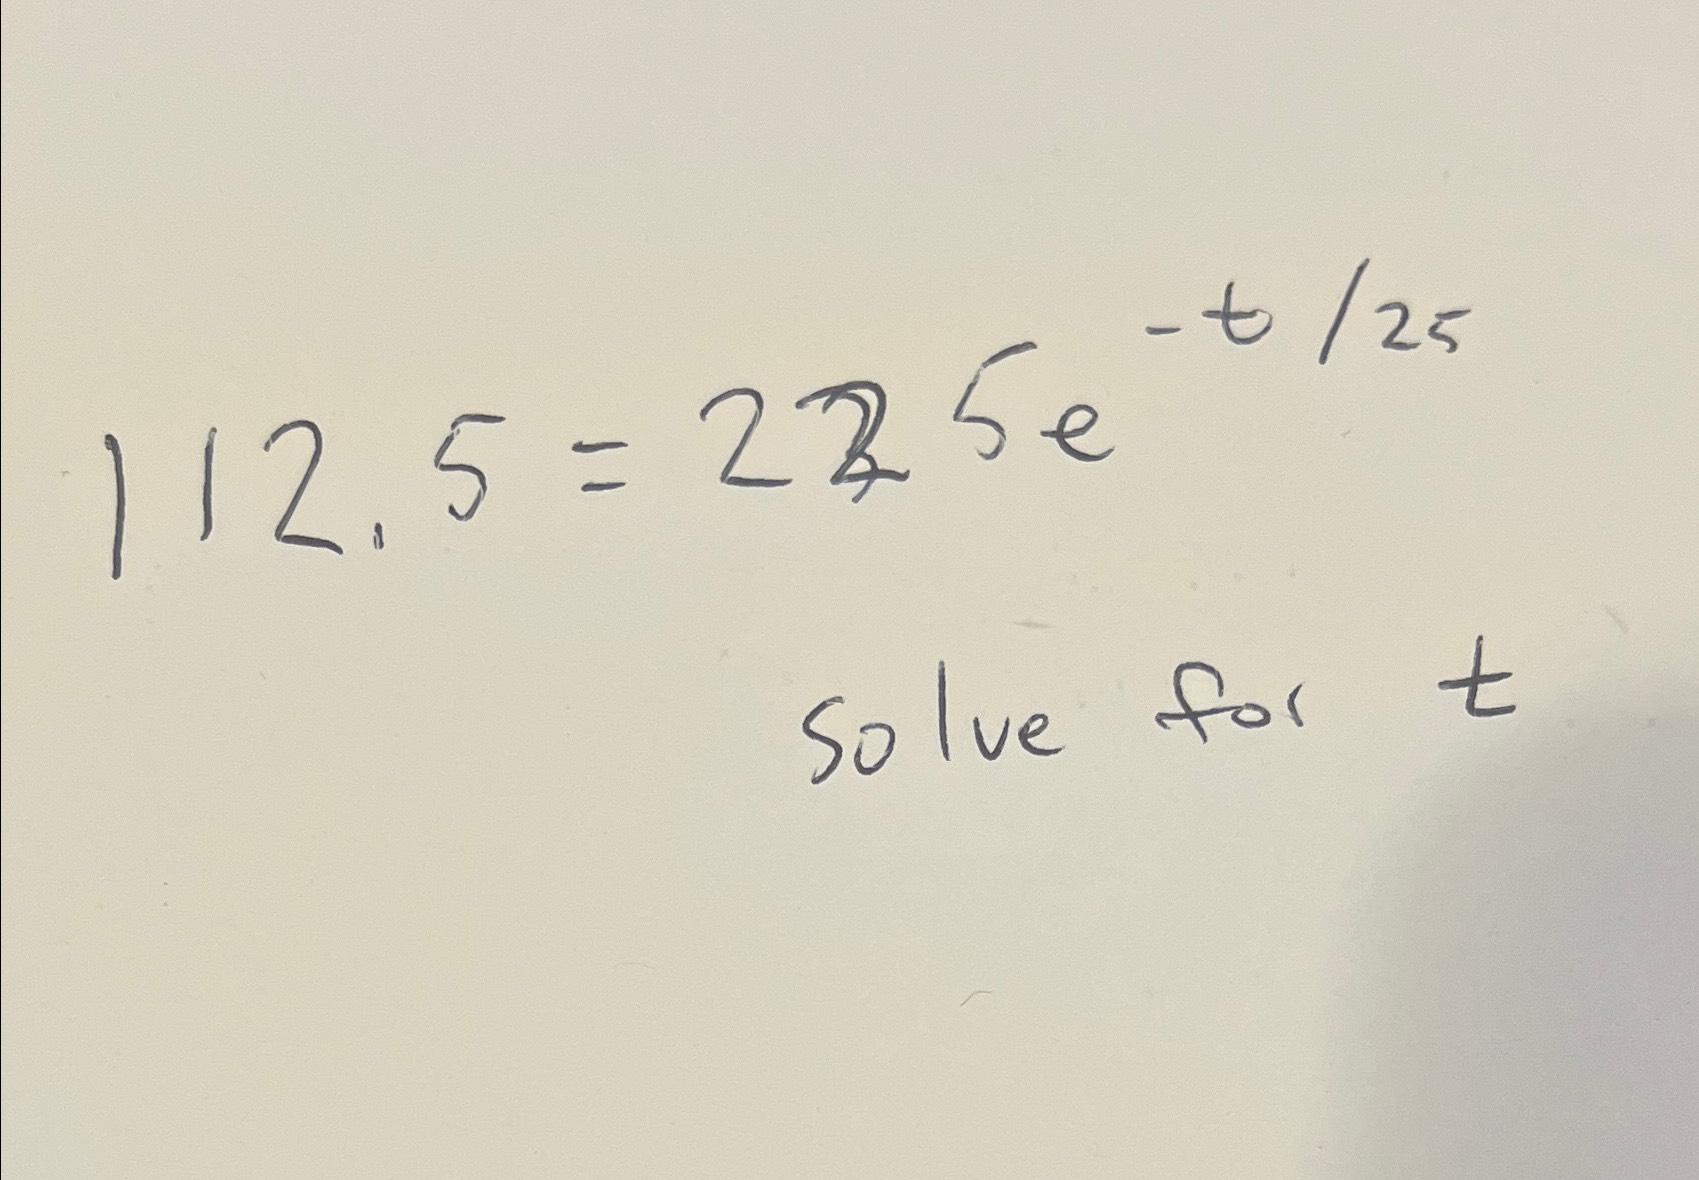 112.5 = 225e^{-t/25}
solve for t